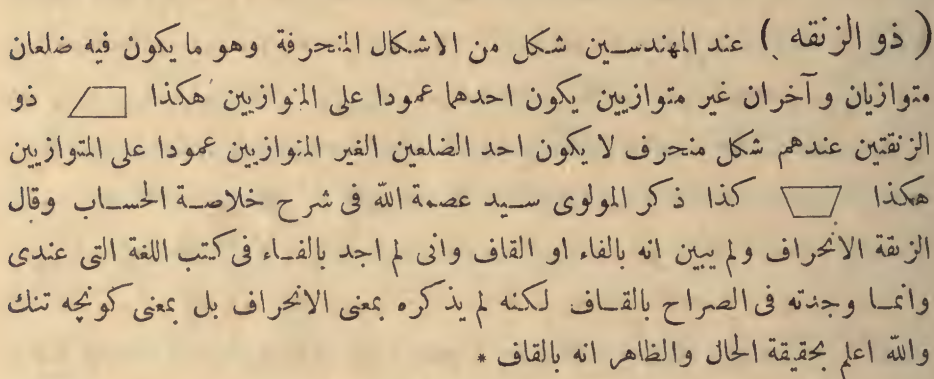 ( ذو الزنقه ) عند المهندسين شكل من الاشكال المنحرفة وهو ما يكون فيه ضلعان
متوازيان و آخران غير متوازيين يكون احدهما عمودا على المنوازيين هكذا ذو
الزنقتين عندهم شكل منحرف لا يكون احد الضلعين الغير المنوازيين عمودا على المتوازيين
هكذا كذا ذكر المولوى سيد عصمة الله فى شرح خلاصة الحساب وقال
الزنقة الانحراف ولم يبين انه بالفاء او القاف وانى لم اجد بالفاء فى كتب اللغة التى عندى
وانما وجدته فى الصراح بالقاف لكنه لم يذكره بمعنى الانحراف بل بمعنى كونچه تنك
والله اعلم بحقيقة الحال والظاهر انه بالقاف *